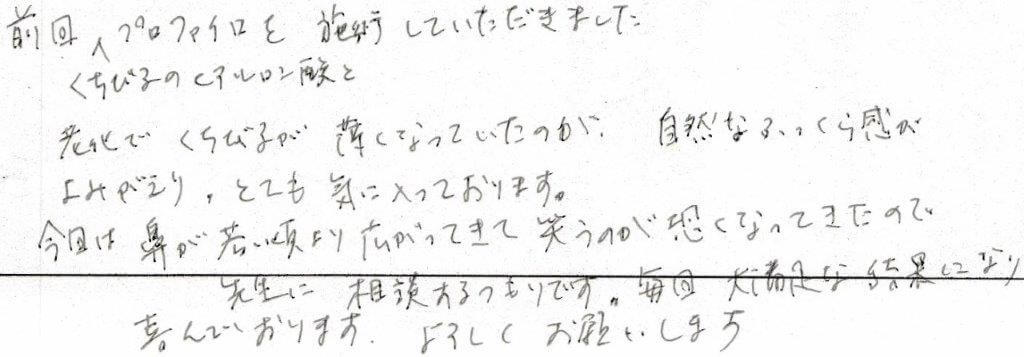 前回 プロファイロを 施術していただきました
くちびるのヒアルロン酸と
老化で くちびるが 薄くなっていたのが、 自然なふっくら感が
よみがえり、とても 気に入っております。
今回は 鼻が 若い頃より 広がってきて 笑うのが 恐くなってきたので
先生に 相談するつもりです。毎回 大満足な結果になり
喜んでおります。 よろしく お願いします